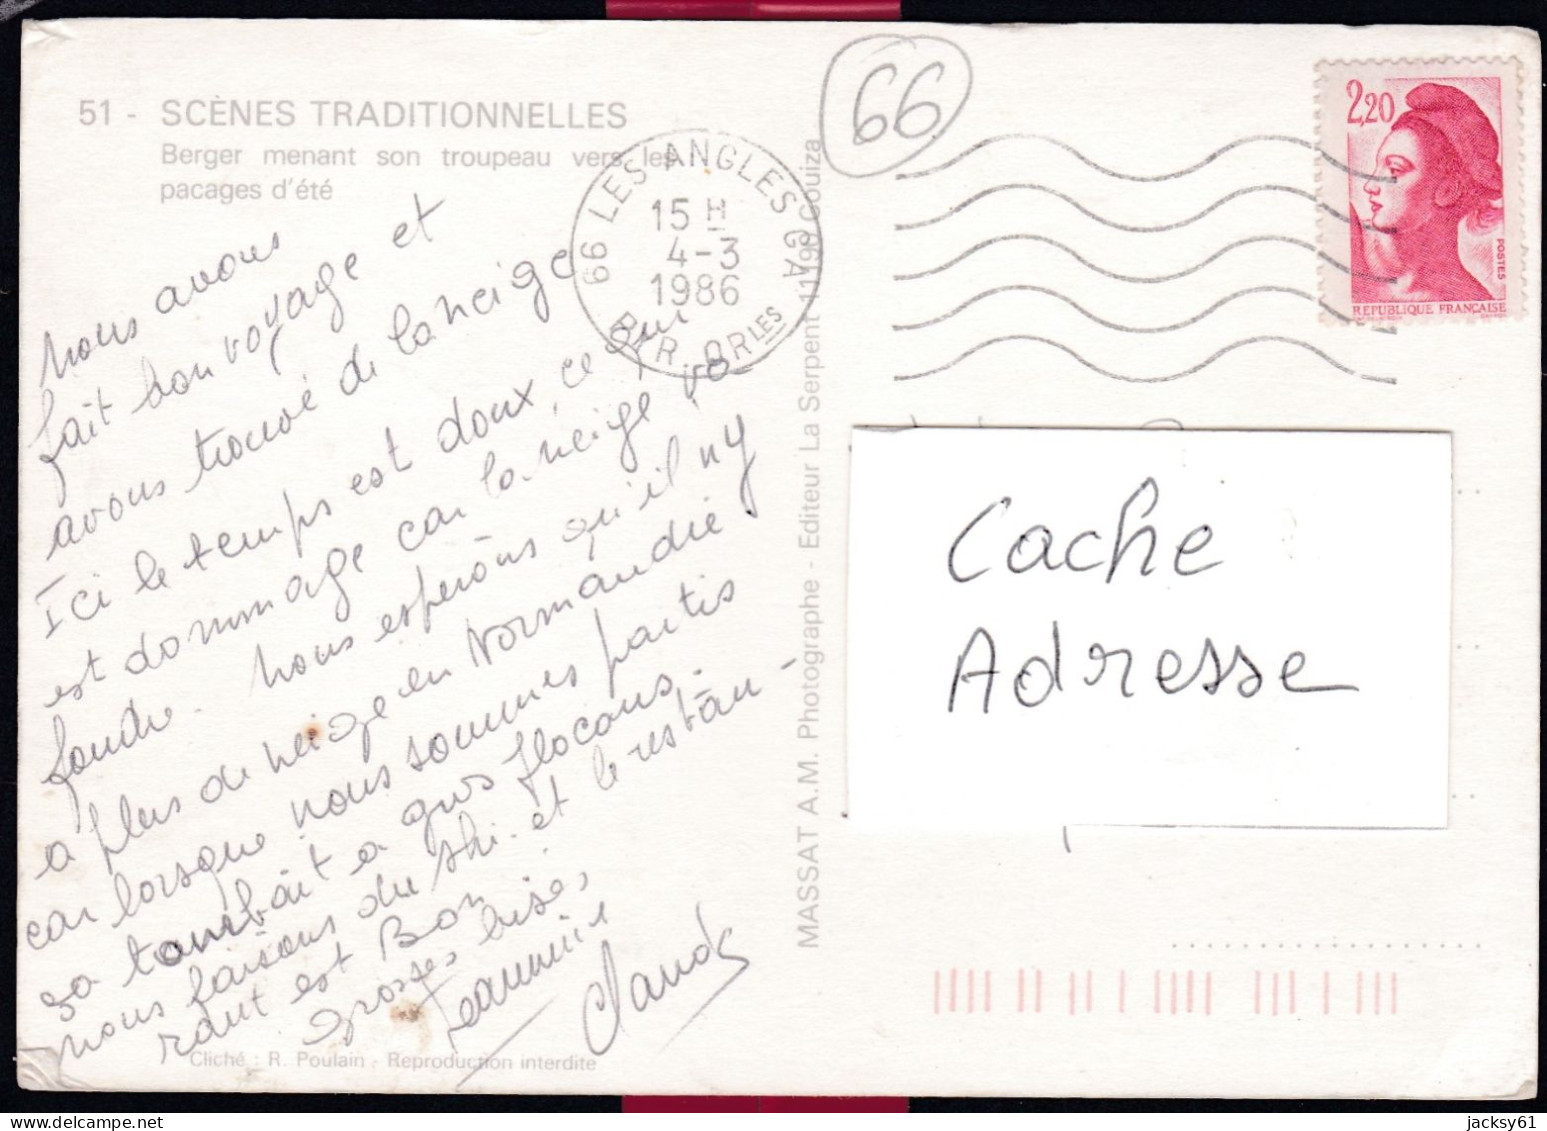 51 - SCÈNES TRADITIONNELLES
Berger menant son troupeau vers les
pacages d'été
nous avons
fait bon voyage et
avons trouvé de la neige
Ici le temps est doux, ce qui
est dommage car la neige va
fondre. nous esperons qu'il n'y
a plus de neige en Normandie
car lorsque nous sommes partis
sa tombait a gros flocons.
nous faisons du ski. et le restau-
rant est Bon
Grosses bises
Jeannine
Claude
Cliché : R. Poulain - Reproduction interdite
MASSAT A.M. Photographe - Editeur La Serpent 11190 Couiza
66
66 LES ANGLES CA
15 H
4-3
1986
PYR. ORLES
2,20
POSTES
REPUBLIQUE FRANÇAISE
Cache
Adresse
jacksy61